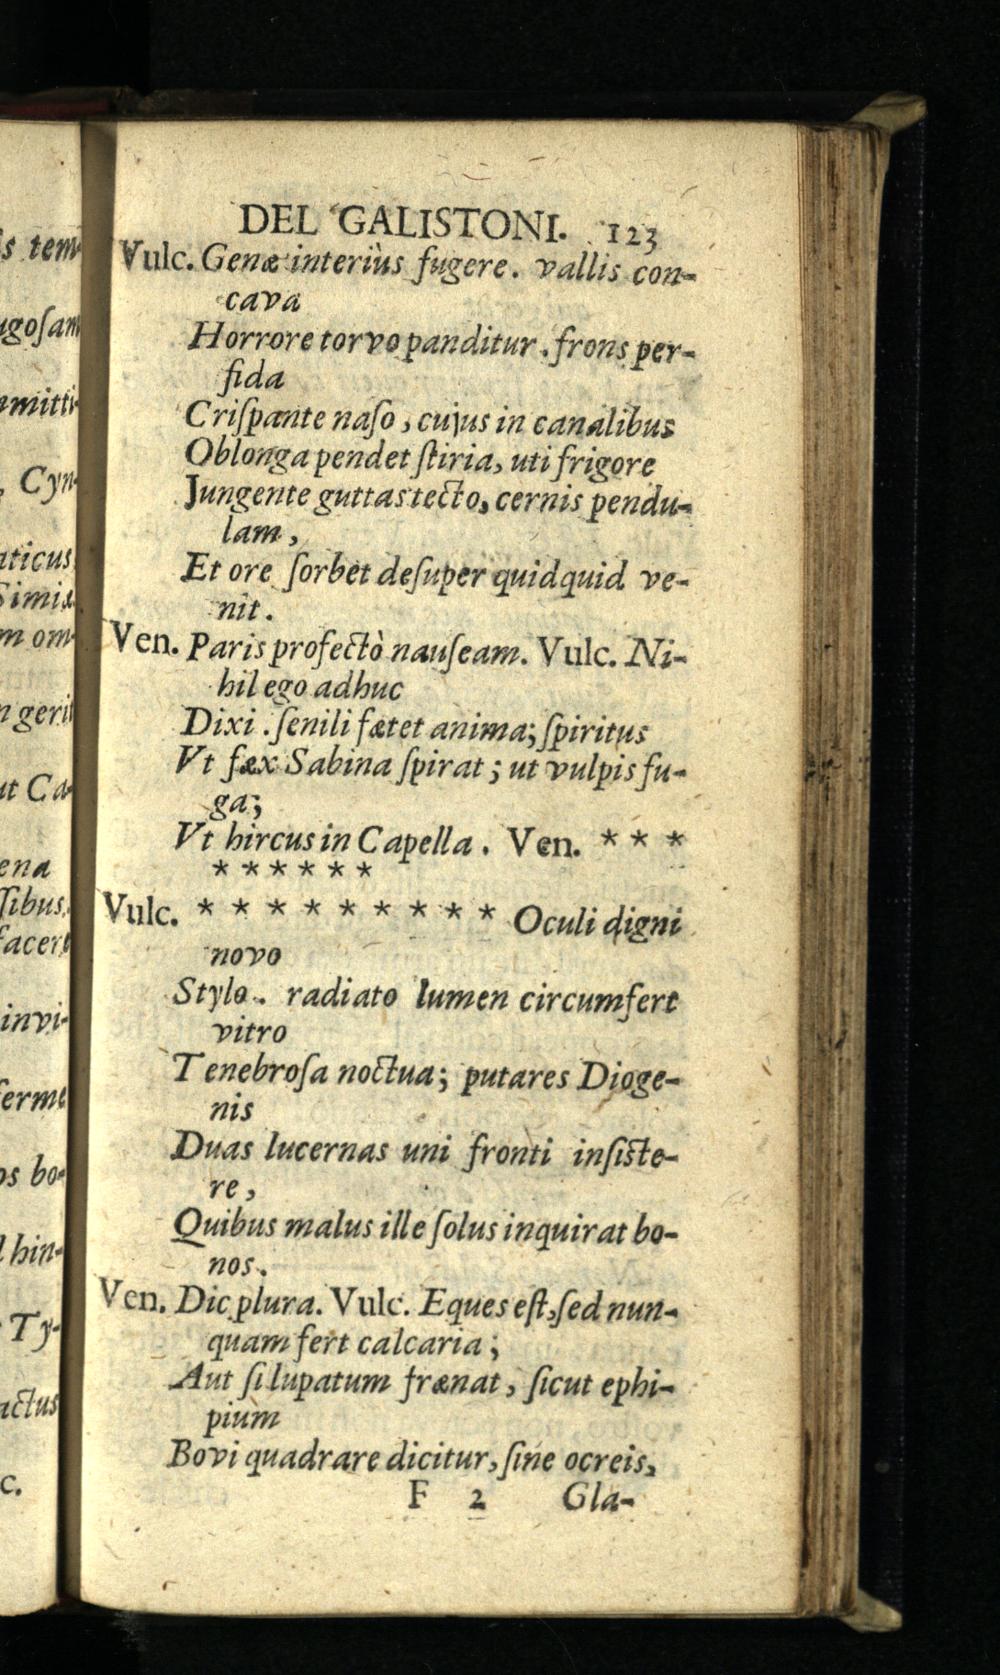 s tem-
ugoſam
mmitti-
, Cyn-
aticus
Simis.
m om-
n gerit
ut Ca-
ena
ſſibus,
facere
invi-
ferme
os bo-
l hin-
Ty-
actus
c.
DEL GALISTONI. 123
Vulc. Genæ interiùs fugere. vallis con-
cava
Horrore torvo panditur. frons per-
fida
Criſpante naſo, cujus in canalibus
Oblonga pendet ſtiria, uti frigore
Jungente guttas tecto, cernis pendu-
lam,
Et ore ſorbet deſuper quidquid ve-
nit.
Ven. Paris profectò nauſeam. Vulc. Ni-
hil ego adhuc
Dixi. ſenili fætet anima; ſpiritus
Vt fæx Sabina ſpirat; ut vulpis fu-
ga;
Vt hircus in Capella. Ven. * * *
* * * * * *
Vulc. * * * * * * * * * Oculi digni
novo
Stylo. radiato lumen circumfert
vitro
Tenebroſa noctua; putares Dioge-
nis
Duas lucernas uni fronti inſiſte-
re,
Quibus malus ille ſolus inquirat bo-
nos.
Ven. Dic plura. Vulc. Eques eſt, ſed nun-
quam fert calcaria;
Aut ſi lupatum frænat, ſicut ephi-
pium
Bovi quadrare dicitur, ſine ocreis,
F 2 Gla-